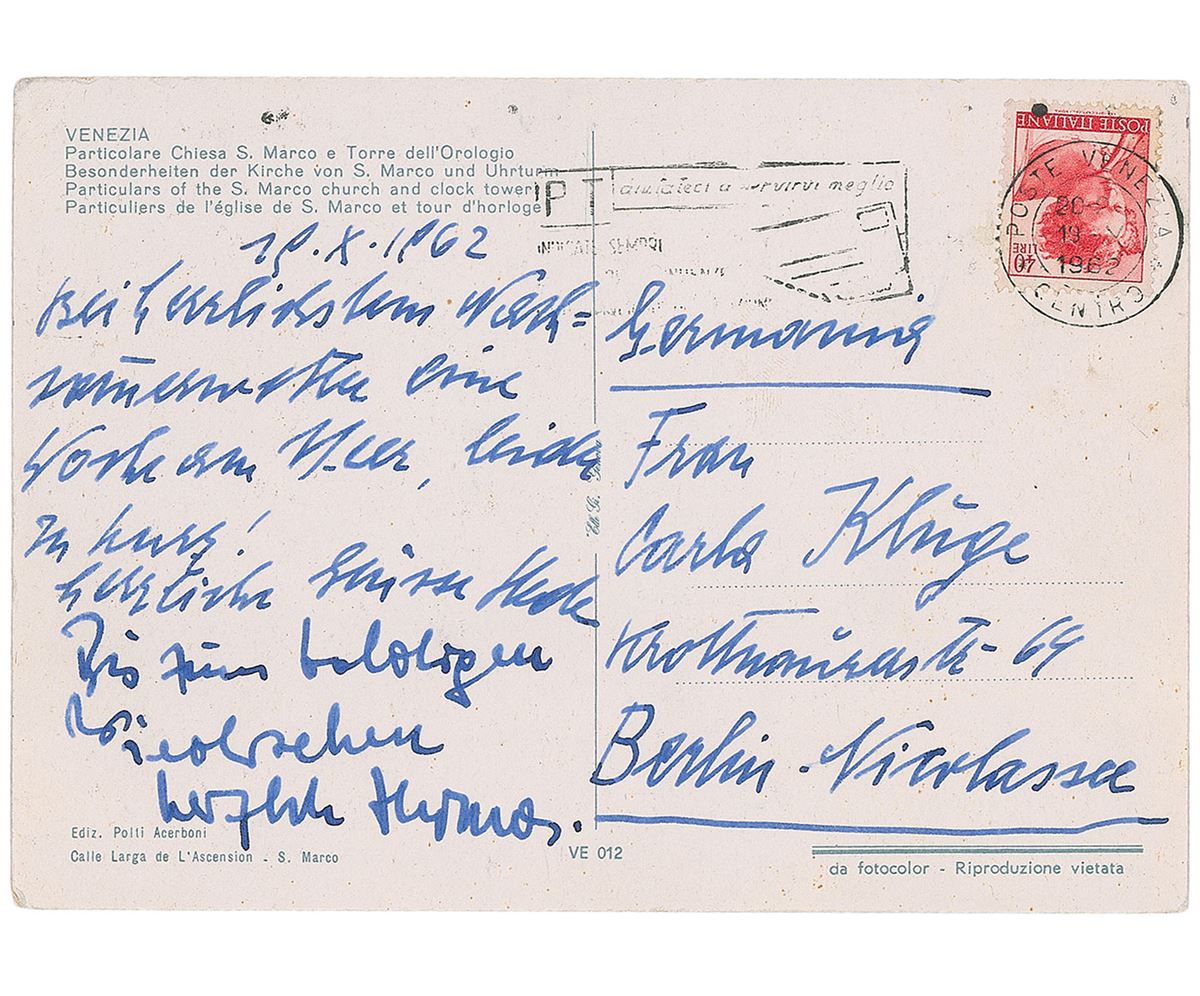 VENEZIA
Particolare Chiesa S. Marco e Torre dell'Orologio
Besonderheiten der Kirche von S. Marco und Uhrturm
Particulars of the S. Marco church and clock tower
Particuliers de l'église de S. Marco et tour d'horloge
19.X.1962
Bei herrlichstem Nach-
sommerwetter eine
Woche am Meer, leider
zu kurz!
Herzliche Grüsse
Bis zum baldigen
Wiedersehen
herzlich Thomas.
Ediz. Polti Acerboni
Calle Larga de L'Ascension - S. Marco
VE 012
PT aiutateci a servirvi meglio
INDICATE SEMPRE
POSTE ITALIANE
LIRE 40
POSTE VENEZIA
20-
19 X
1962
CENTRO
Germania
Frau
Carla Kluge
64
Berlin-Nicolassee
da fotocolor - Riproduzione vietata